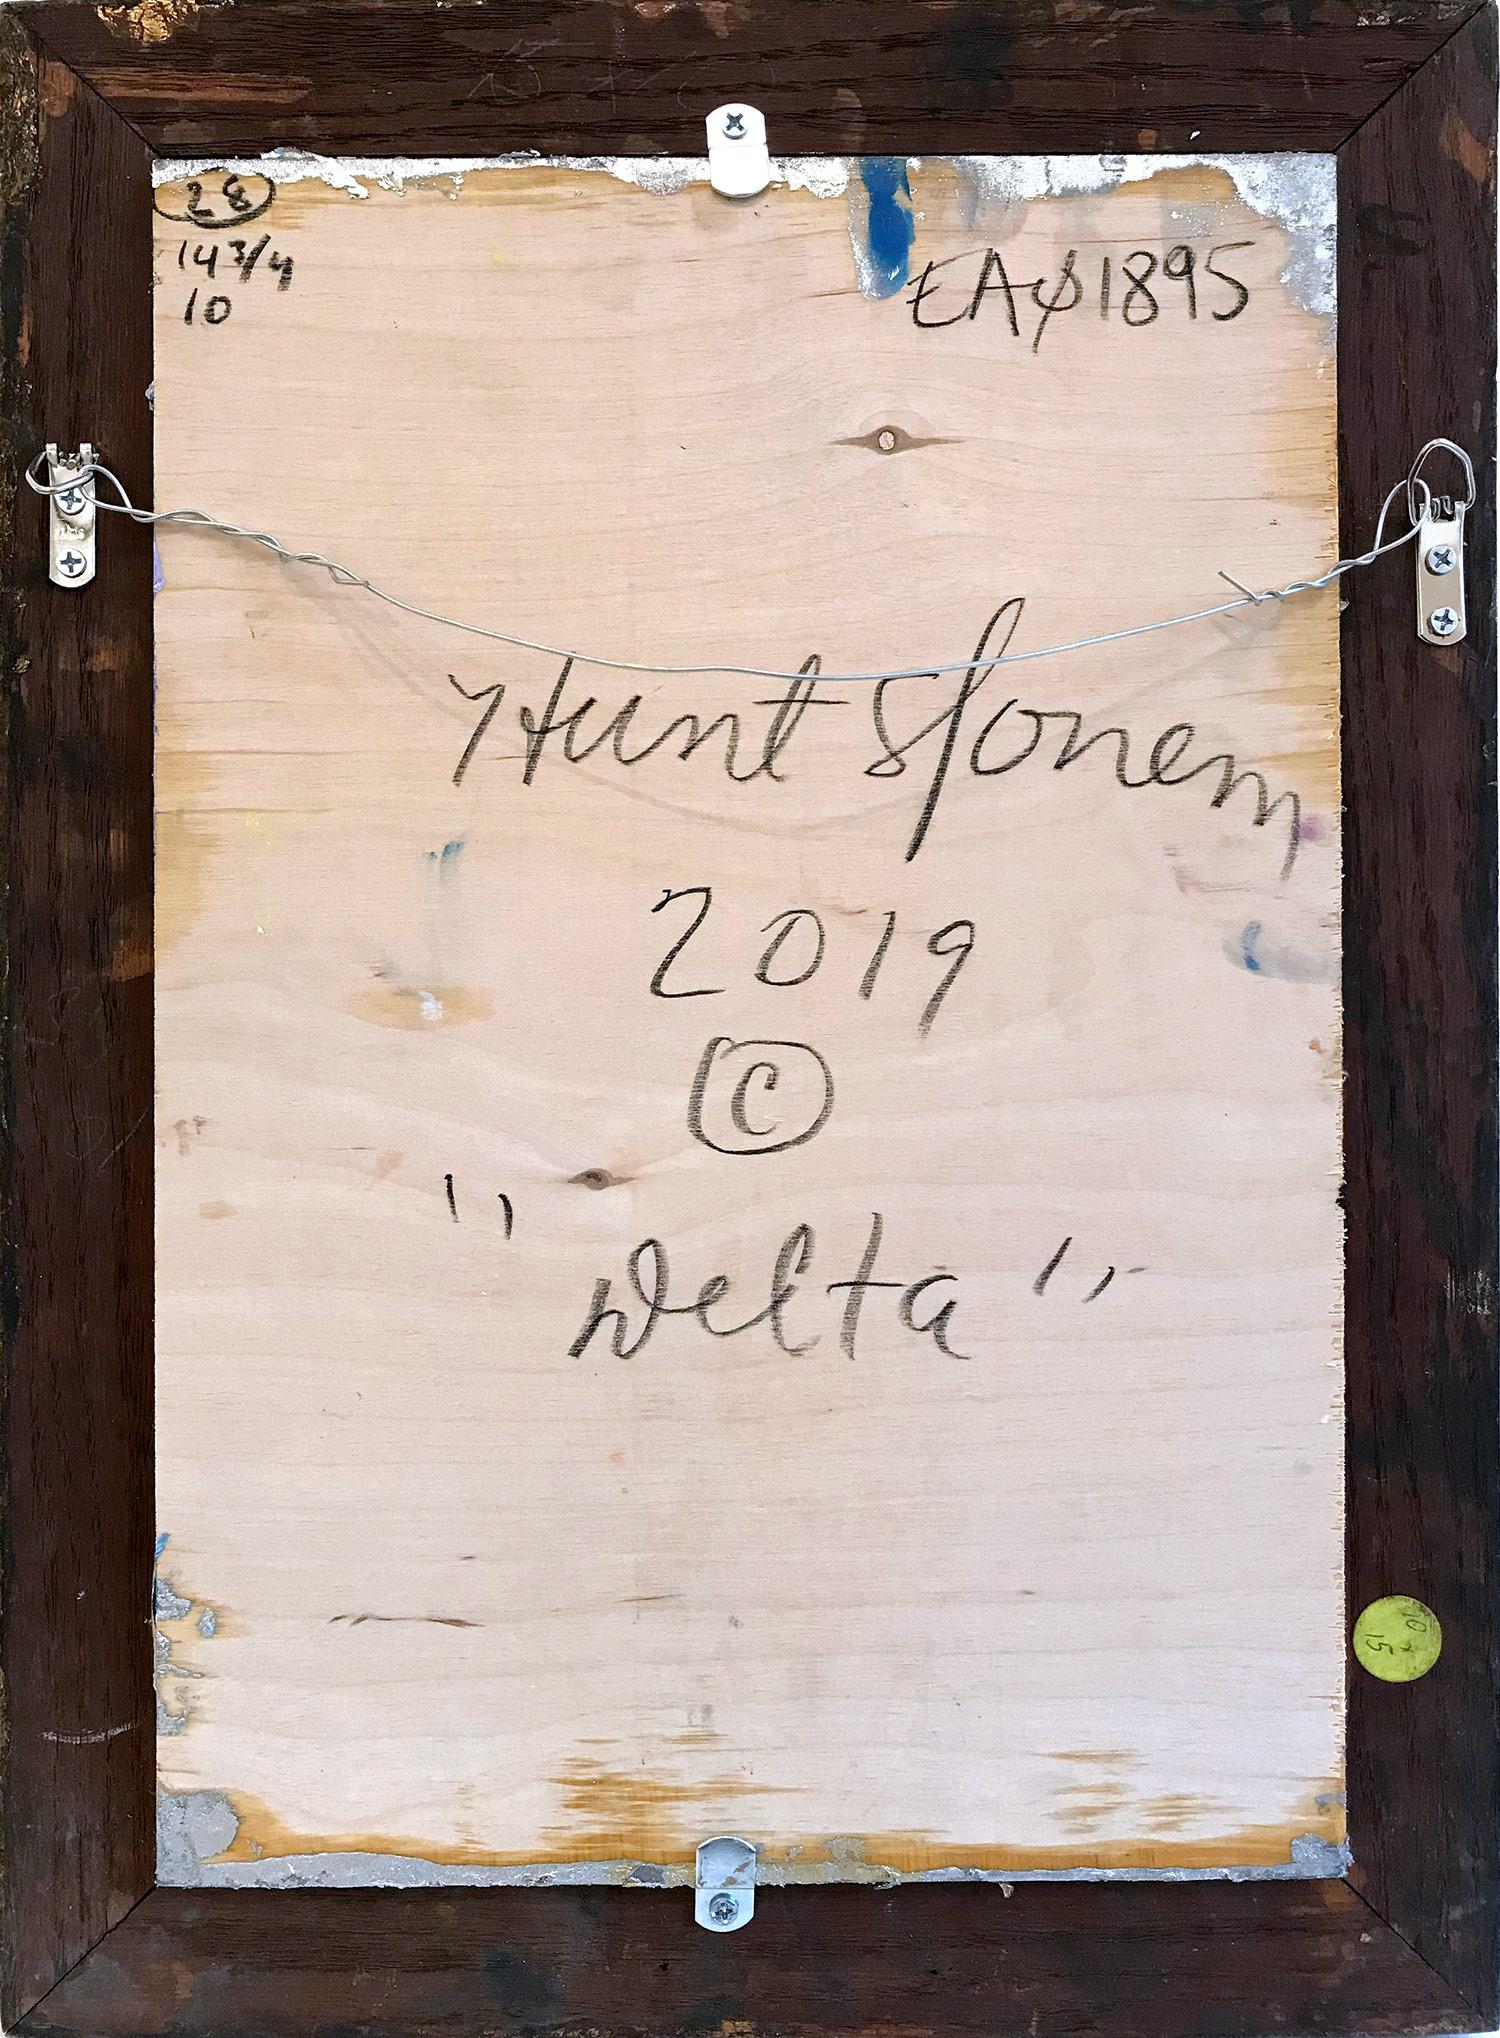 28
14 3/4
10
EAφ1895
Hunt Slonem
2019
©
"Delta"
10 x
15